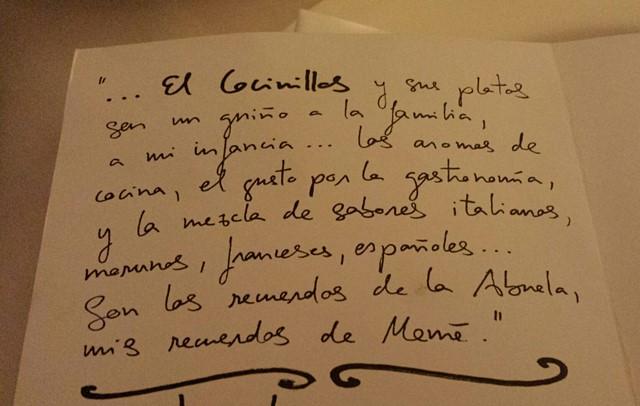 "... El Cocinillas y sus platos
son un guiño a la familia,
a mi infancia... los aromas de
cocina, el gusto por la gastronomía,
y la mezcla de sabores italianos,
morunos, franceses, españoles...
Son los recuerdos de la Abuela,
mis recuerdos de Memé."